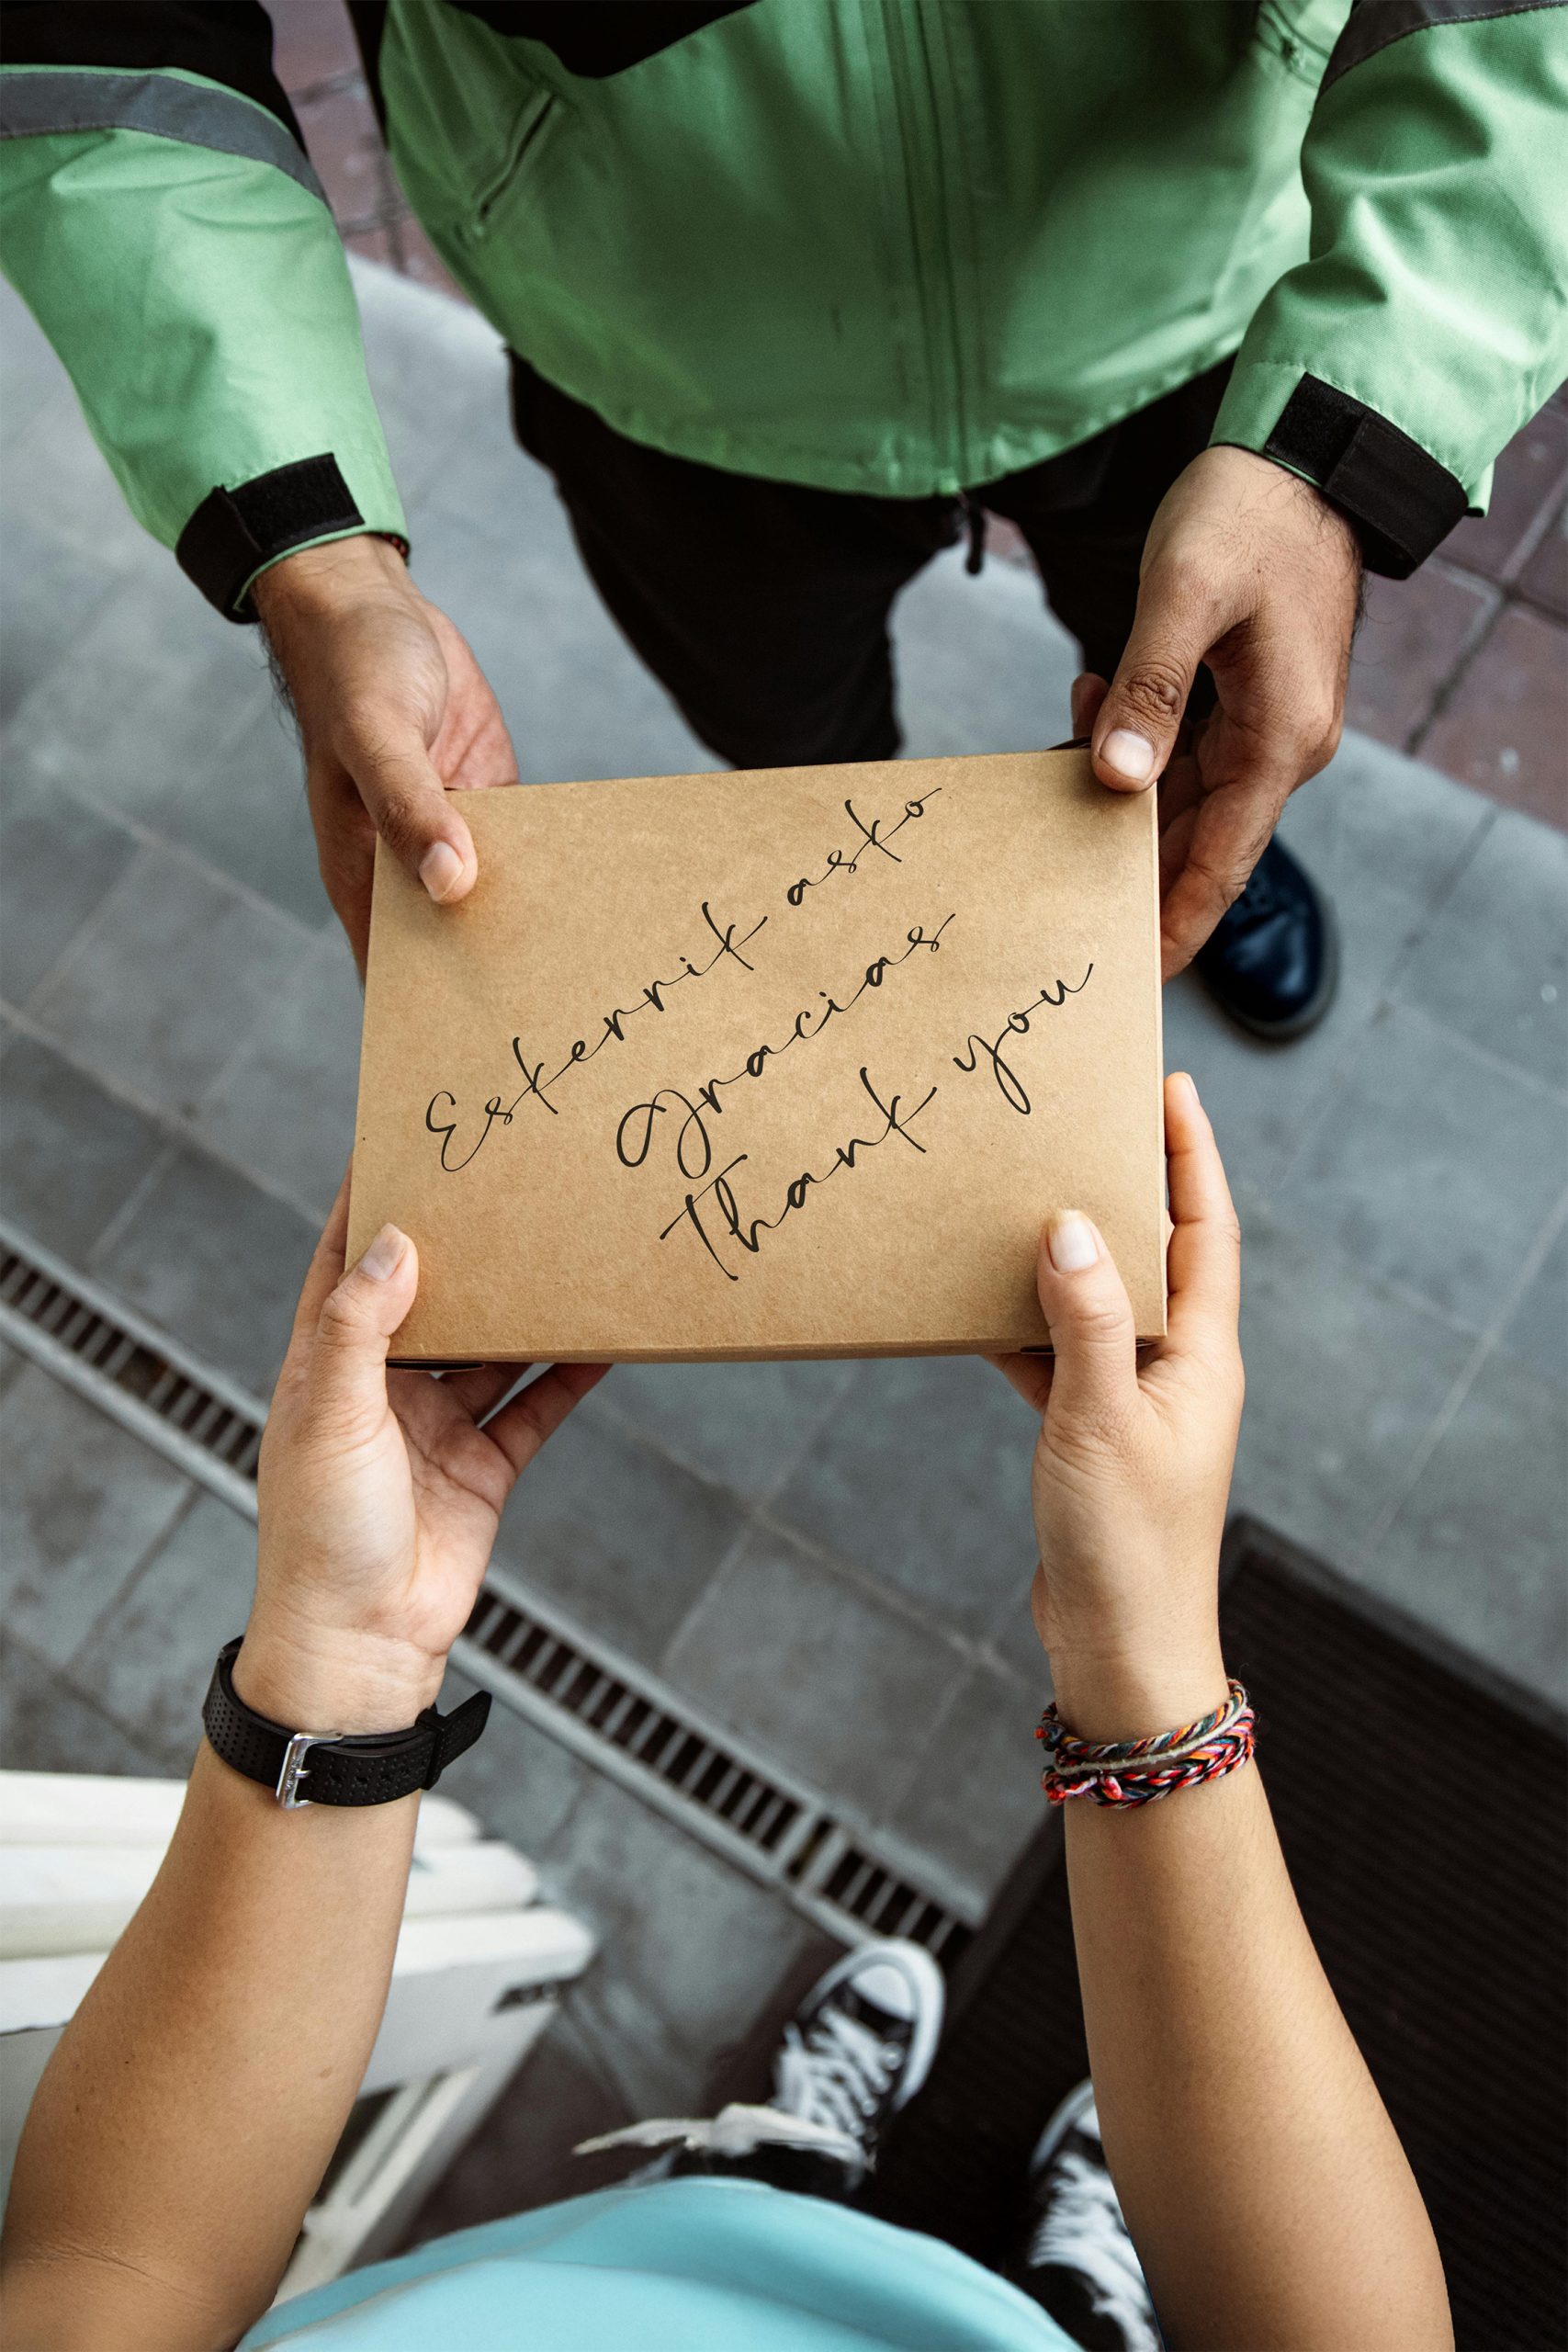 Eskerrik asko
Gracias
Thank you